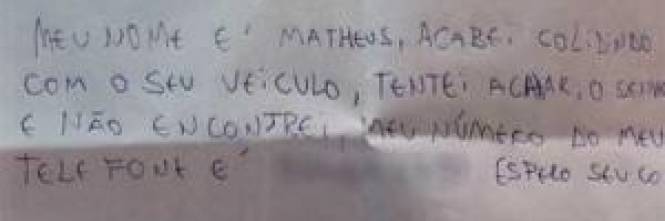 MEU NOME E' MATHEUS, ACABEI COLIDINDO
COM O SEU VEÍCULO, TENTEI ACHAR, O
E NÃO ENCONTREI, MEU NÚMERO DO MEU
TELEFONE E' ESPERO SEU CO